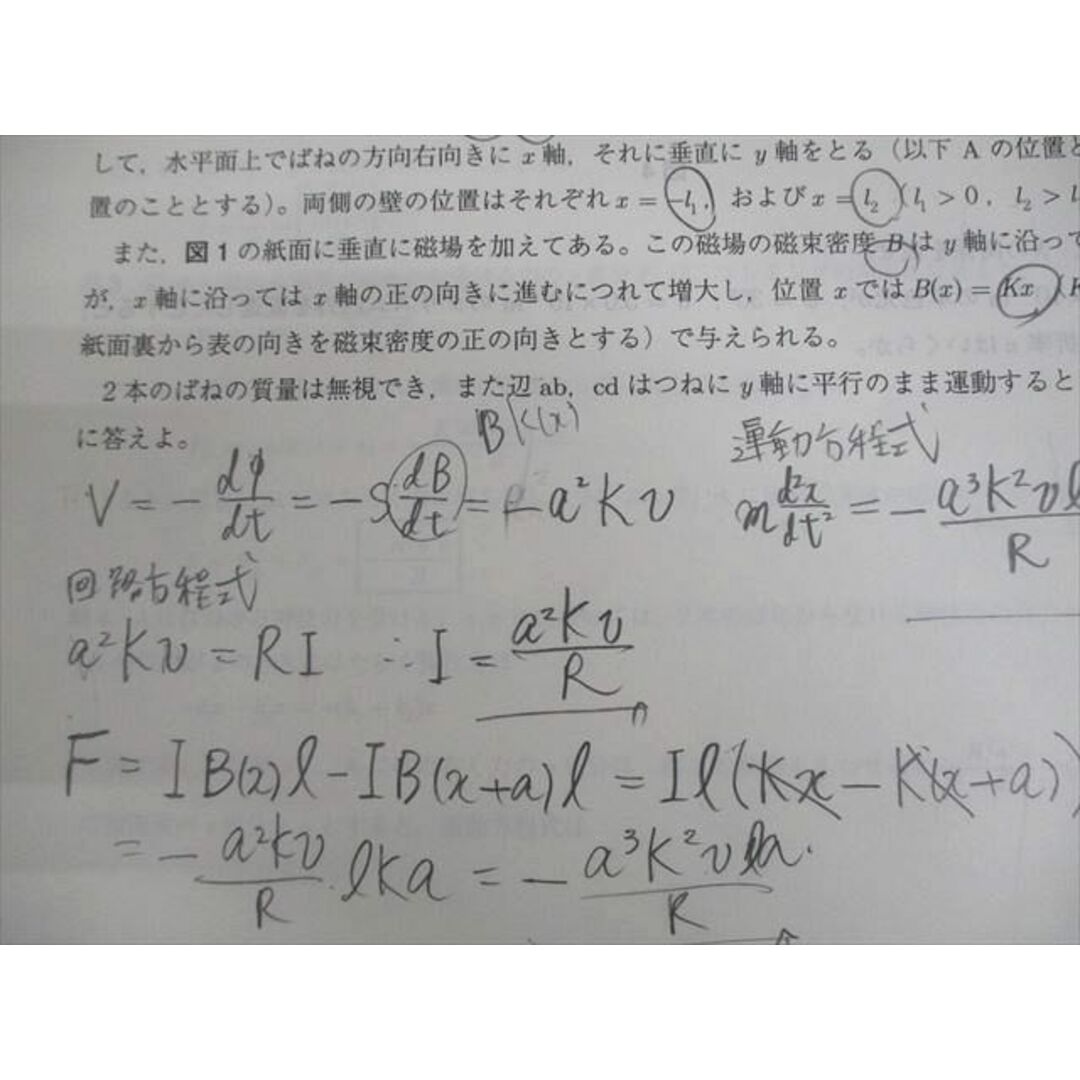 して，水平面上でばねの方向右向きに x 軸，それに垂直に y 軸をとる（以下 A の位置と
置のこととする）。両側の壁の位置はそれぞれ x = -l₁，および x = l₂ (l₁ > 0，l₂ > l
また，図1の紙面に垂直に磁場を加えてある。この磁場の磁束密度 B は y 軸に沿って
が，x 軸に沿っては x 軸の正の向きに進むにつれて増大し，位置 x では B(x) = Kx (K
紙面裏から表の向きを磁束密度の正の向きとする）で与えられる。
2本のばねの質量は無視でき，また辺 ab，cd はつねに y 軸に平行のまま運動すると
に答えよ。
B K(x)
運動方程式
V = - dφ/dt = - S dB/dt = - a²Kv
m d²x/dt² = - a³K²vl/R
回路方程式
a²Kv = RI ∴ I = a²Kv/R
F = I B(x)l - I B(x+a)l = Il(Kx - K(x+a))
= - a²Kv/R · lKa = - a³K²v/R